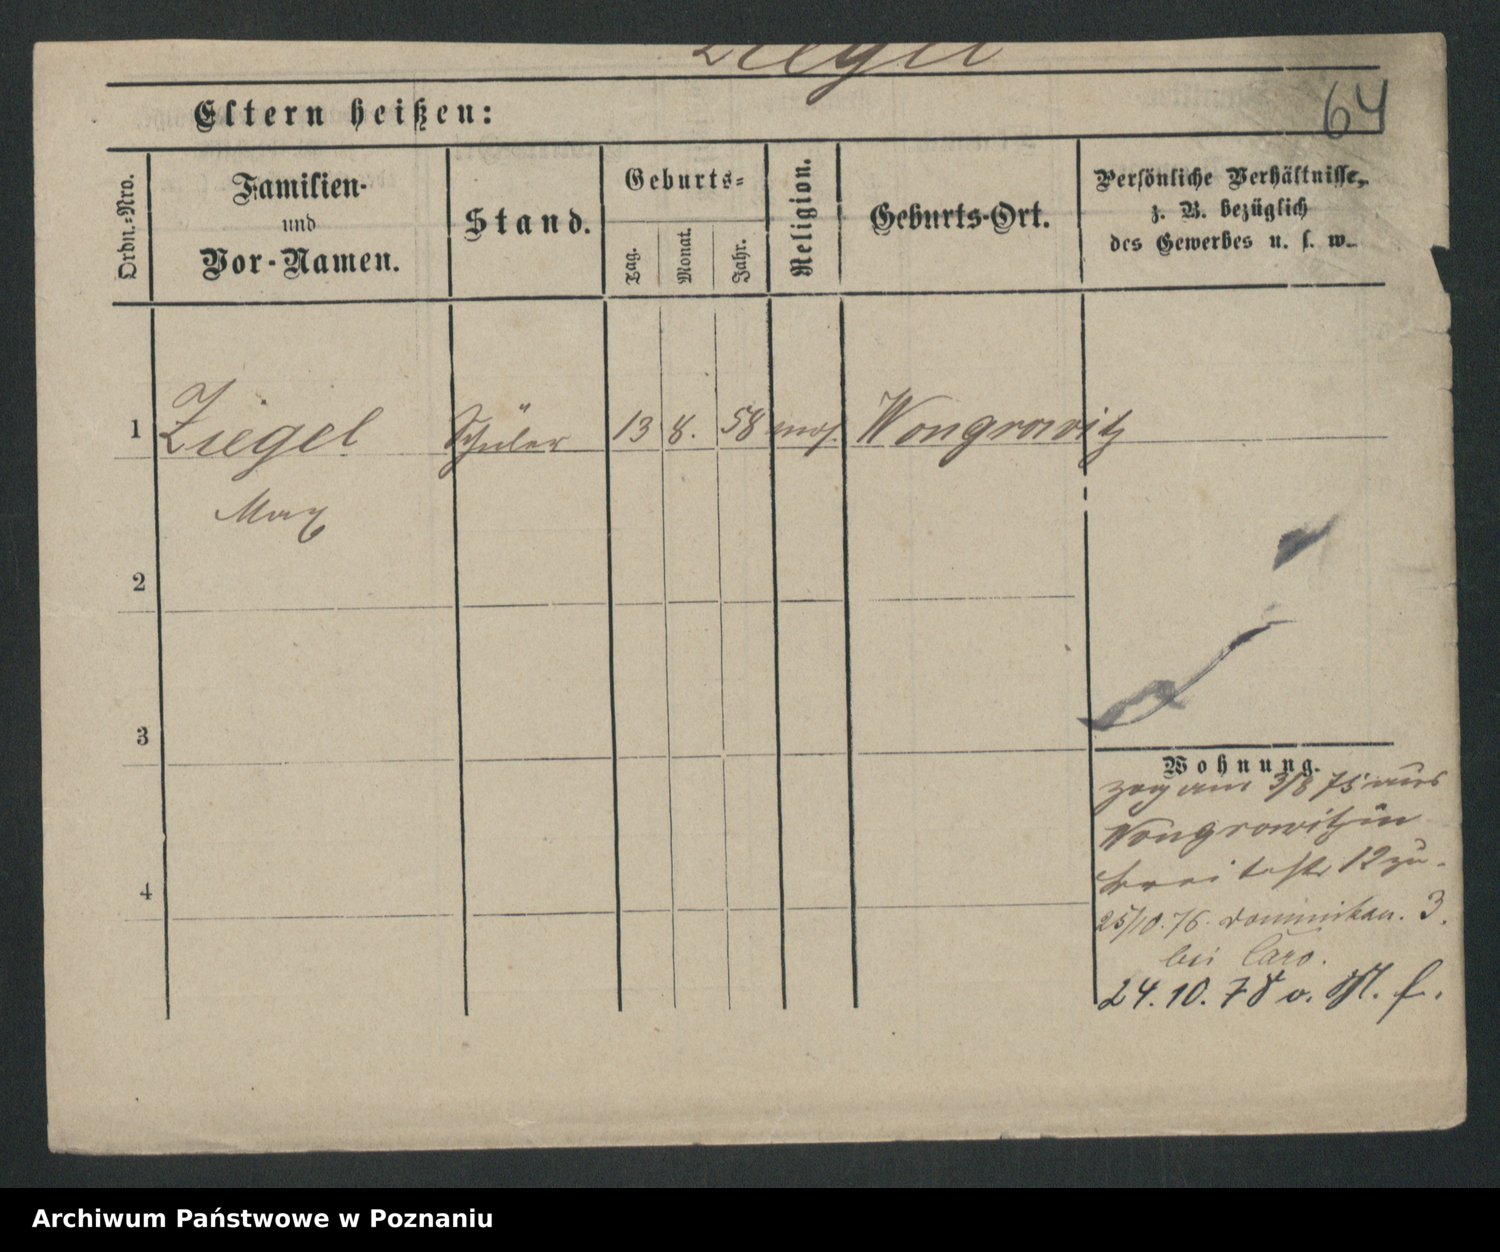 Ziegel
64
Eltern heißen:
Ordn.-Nro.
Familien-
und
Vor-Namen.
Stand.
Geburts-
Tag.
Monat.
Jahr.
Religion.
Geburts-Ort.
Persönliche Verhältnisse,
z. B. bezüglich
des Gewerbes u. s. w.
1 Ziegel Schüler 13 8. 58 mos. Wongrowitz
Max
2
3
4
Wohnung.
zog am 3/8 75 aus
Wongrowitz in
12 zu.
25/10. 76. Dominikan. 3.
bei Caro.
24. 10. 78 v. M. f.
Archiwum Państwowe w Poznaniu